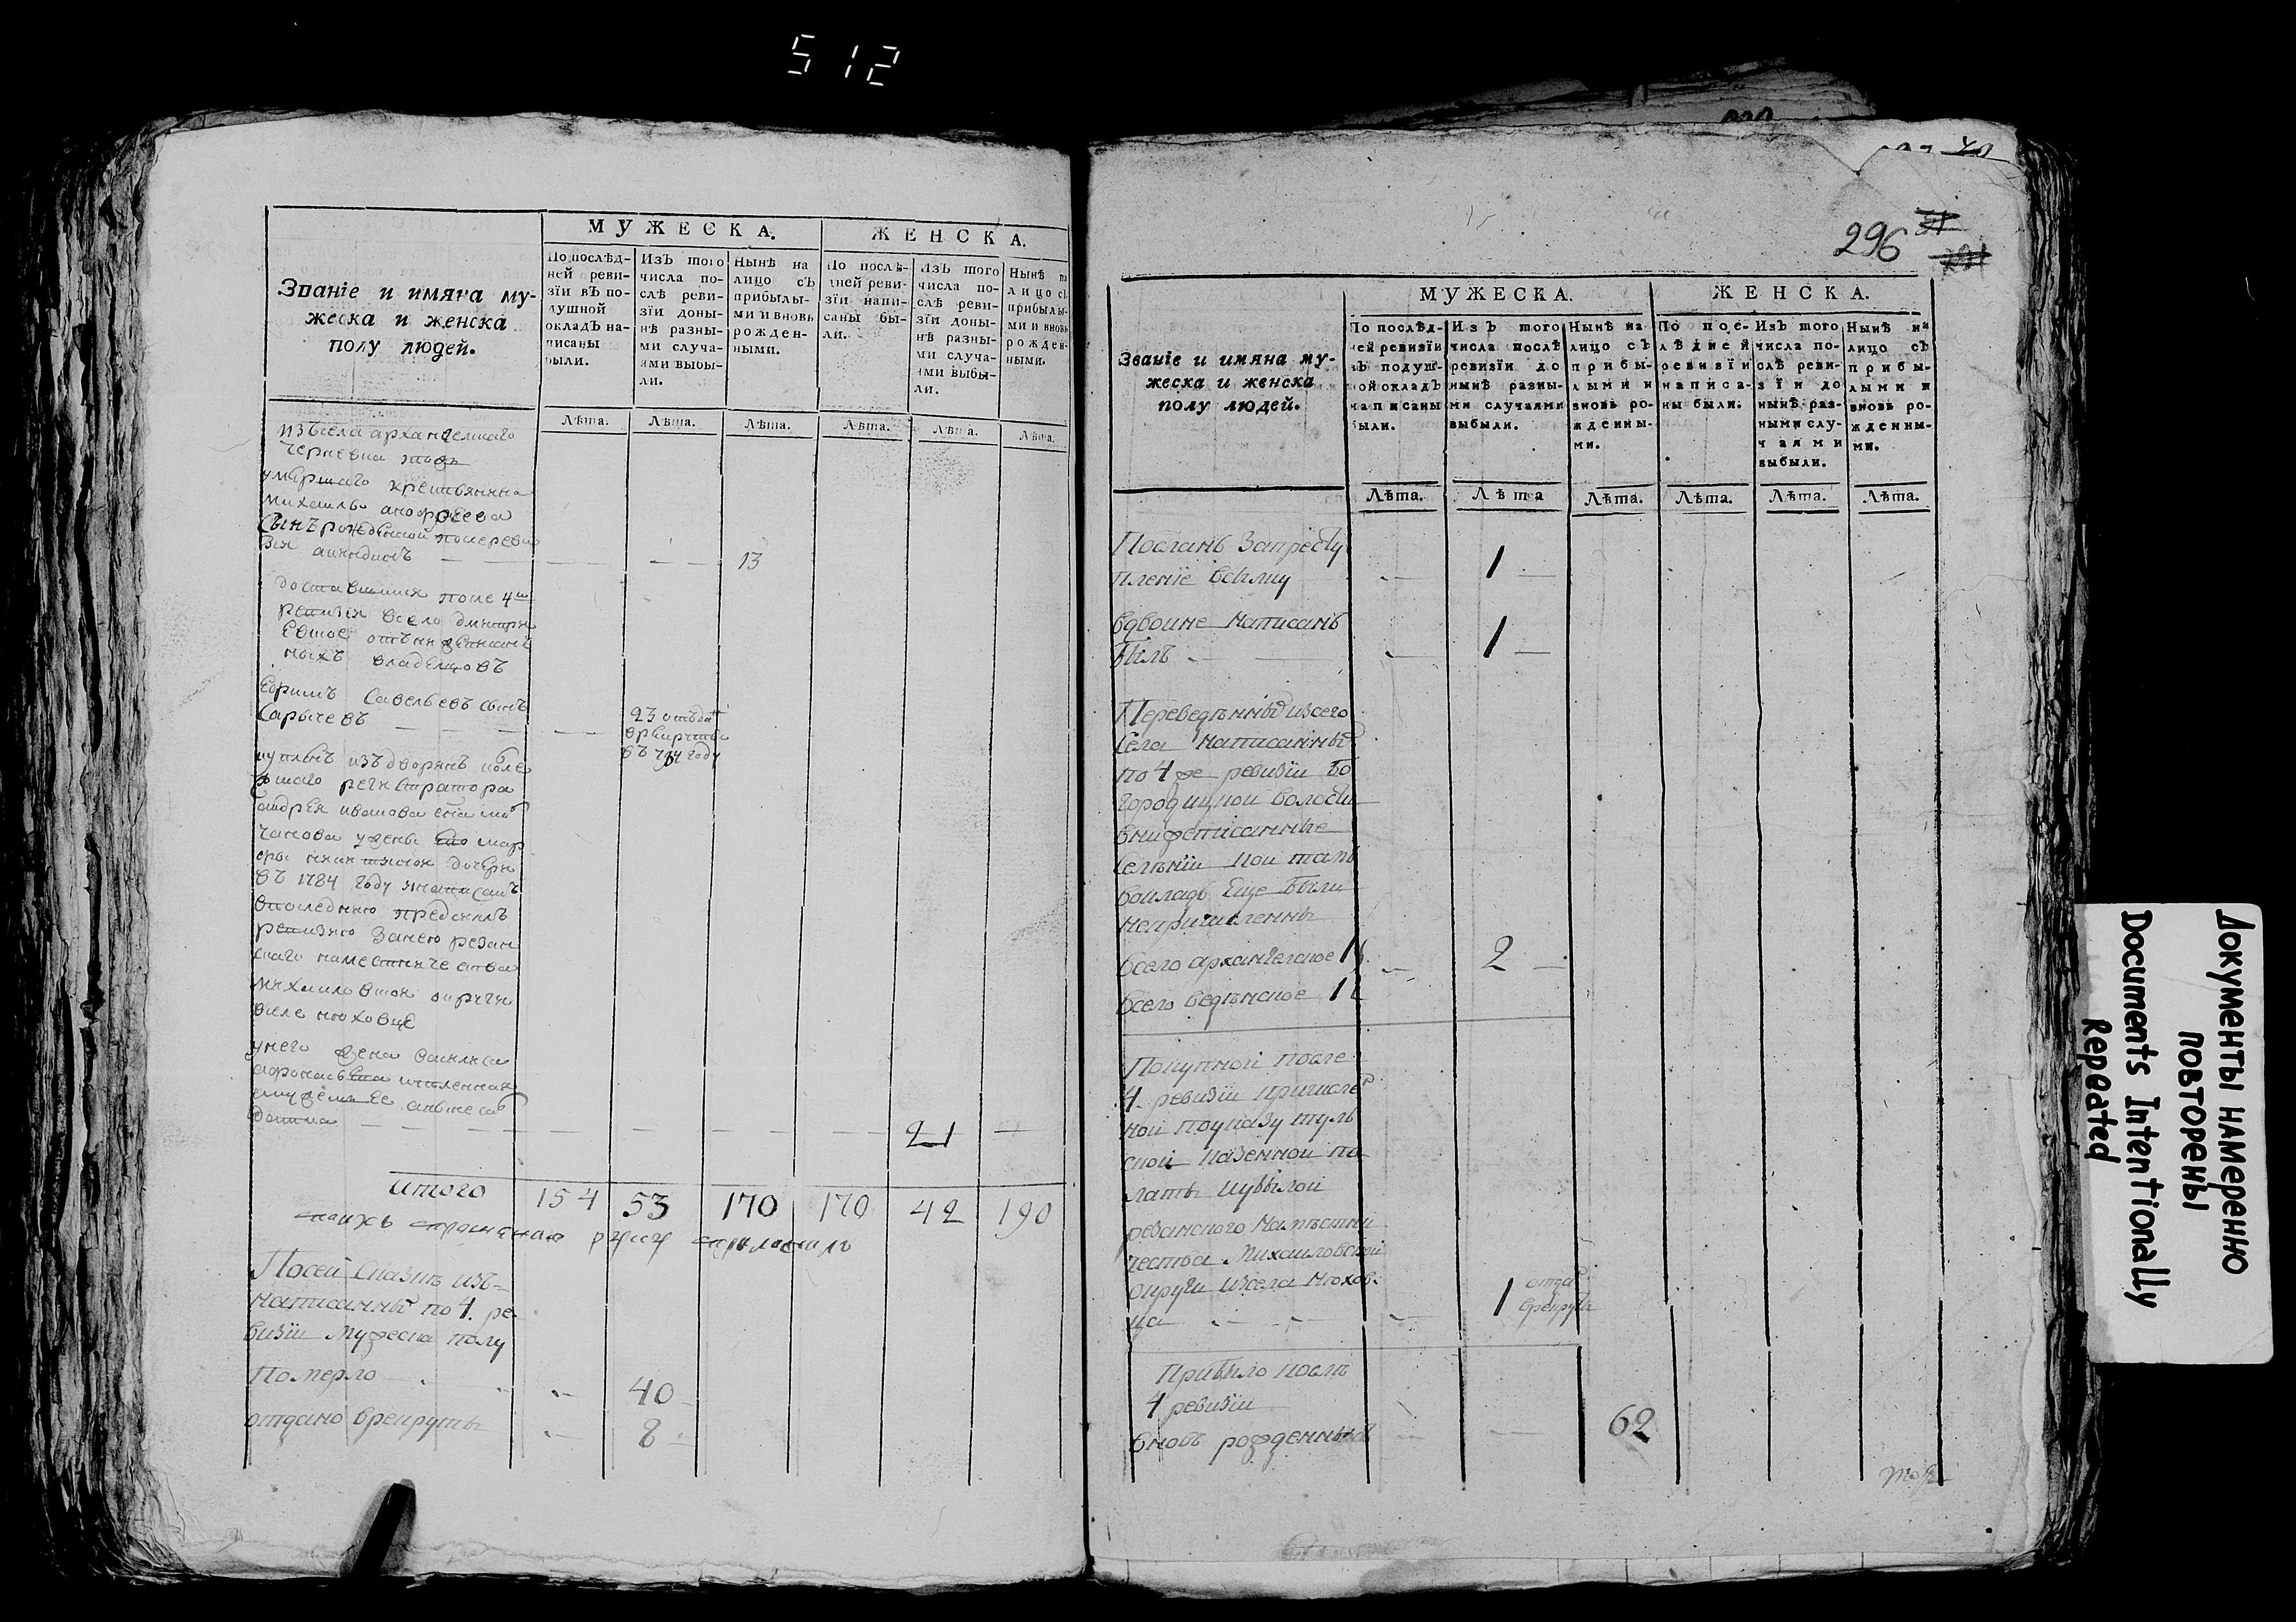 512
МУЖЕСКА.
ЖЕНСКА.
Званіе и имяна му-
жеска и женска
полу людей.
По послѣд-
ней реви-
зіи въ по-
душной
окладъ на-
писаны
были.
Изъ того
числа по-
слѣ реви-
зіи доны-
нѣ разны-
ми случа-
ями выбы-
ли.
Нынѣ на
лицо съ
прибылы-
ми и вновь
рожден-
ными.
По послѣ-
дней реви-
зіи напи-
саны бы-
ли.
Изъ того
числа по-
слѣ реви-
зіи доны-
нѣ разны-
ми случа-
ями выбы-
ли.
Нынѣ на
лицо съ
прибылы-
ми и вновь
рожден-
ными.
Лѣта. Лѣта. Лѣта. Лѣта. Лѣта. Лѣта.
изъ села архангелскаго
умершаго крестьянина
михаила
сынъ рожденной после реви
зіи 13
доставшиися после 4й
ревизіи всело дмитри
евское отъ
ныхъ владелцовъ
Ефимъ Савельевъ сынъ
Сарычевъ 23 отъдан
врекруты
въ году
купленъ изъ дворянъ
регистратора
андрея иванова сна
чанова у жены ево мар
фы никитиной дочери
въ 1784 году написанъ
впоследнюю предсимъ
ревизию занею резан
скаго наместничества
михаиловской округи
вселе нюховце
унего жена василиса
21
итого 154 53 170 170 42 190
Посей сказке изъ
написанныхъ по 4. ре
визіи мужеска полу
Померло 40
отдано врекруты 8
296
МУЖЕСКА.
ЖЕНСКА.
Званіе и имяна му-
жеска и женска
полу людей.
По послѣд-
ней ревизіи
въ подуш-
ной окладъ
написаны
были.
Изъ того
числа послѣ
ревизіи до
нынѣ разны-
ми случаями
выбыли.
Нынѣ на
лицо съ
прибы-
лыми и
вновь ро-
жденны-
ми.
По пос-
лѣдней
ревизіи
написа-
ны были.
Изъ того
числа по-
слѣ реви-
зіи до
нынѣ раз-
ными слу-
чаями
выбыли.
Нынѣ на
лицо съ
прибы-
лыми и
вновь ро-
жденны-
ми.
Лѣта. Лѣта Лѣта. Лѣта. Лѣта. Лѣта.
Посланъ запресту
пленіе всылку 1
вдвоине написанъ
былъ 1
Переведенныхъ изсего
села написанныхъ
по 4 же ревизіи бо
городицкой волости
внижеписанные
селеніи кои тамъ
вокладъ еще были
непричисленны
всело архангелское 1 2
всело 1
Покупной после
4. ревизіи причислен
ной поуказу туль
ской казенной па
латы избылой
резанского наместни
чества михаиловской
округи изсела нюхов
ца 1 отдан
врекруты
Прибыло после
4 ревизіи
вновь рожденныхъ 62
Документы намеренно
повторены
Documents Intentionally
Repeated